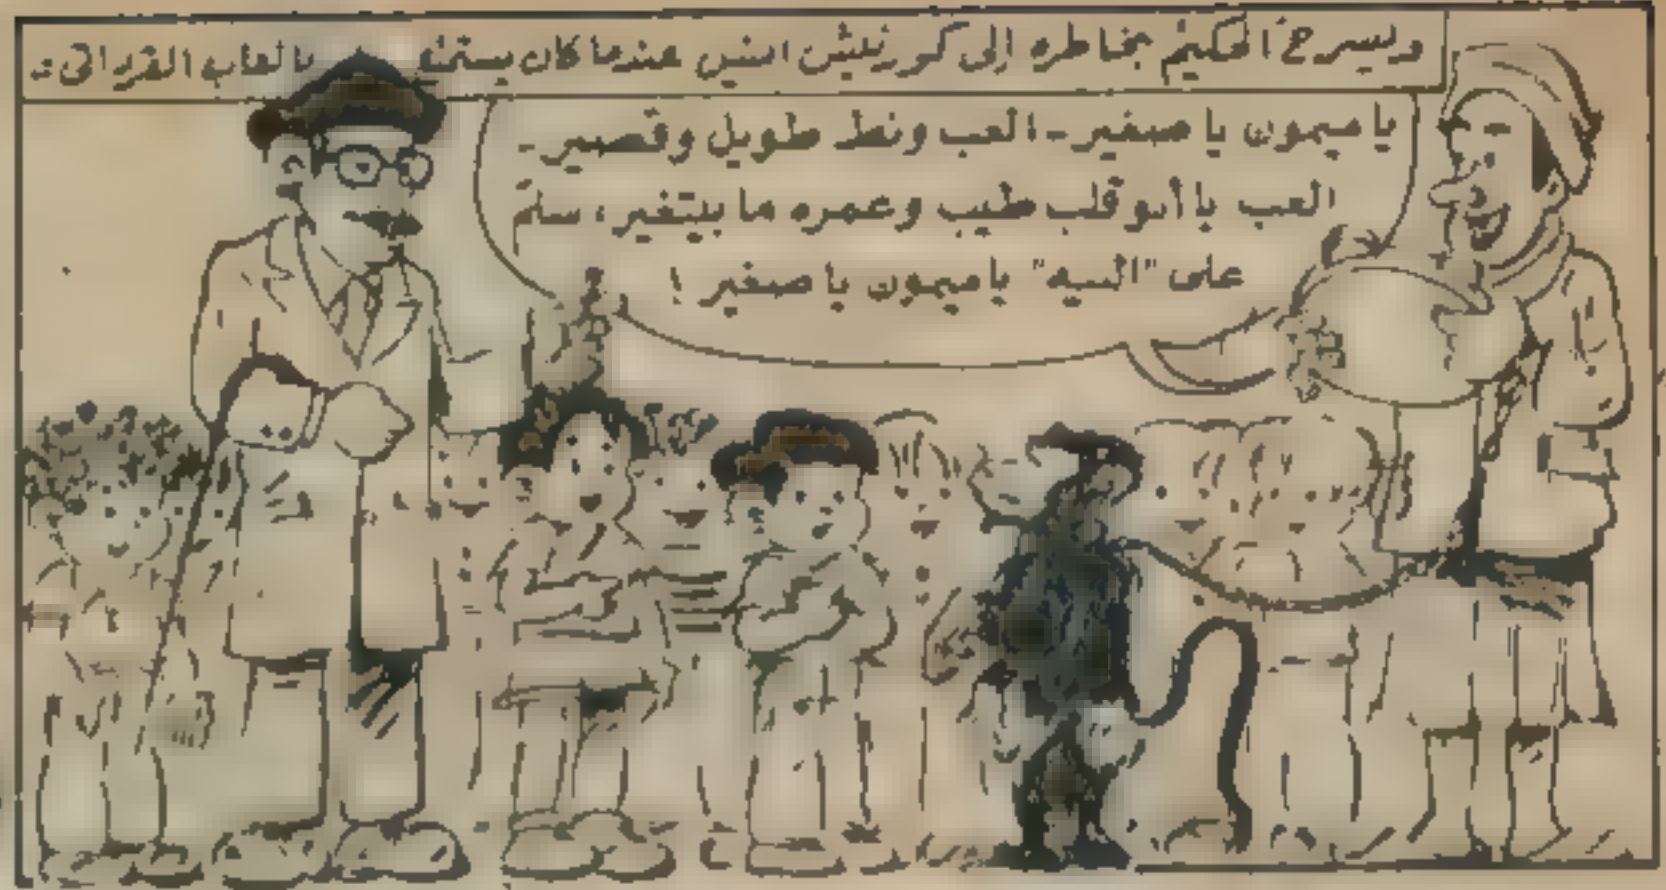 ويسرح الحكيم بخاطره إلى كورنيش النيل عندما كان يستمتع بألعاب القرداتى :
يا ميمون يا صغير - العب ونط طويل وقصير -
العب يا أبو قلب طيب وعمره ما بيتغير ، سلم
على "البيه" يا ميمون يا صغير !